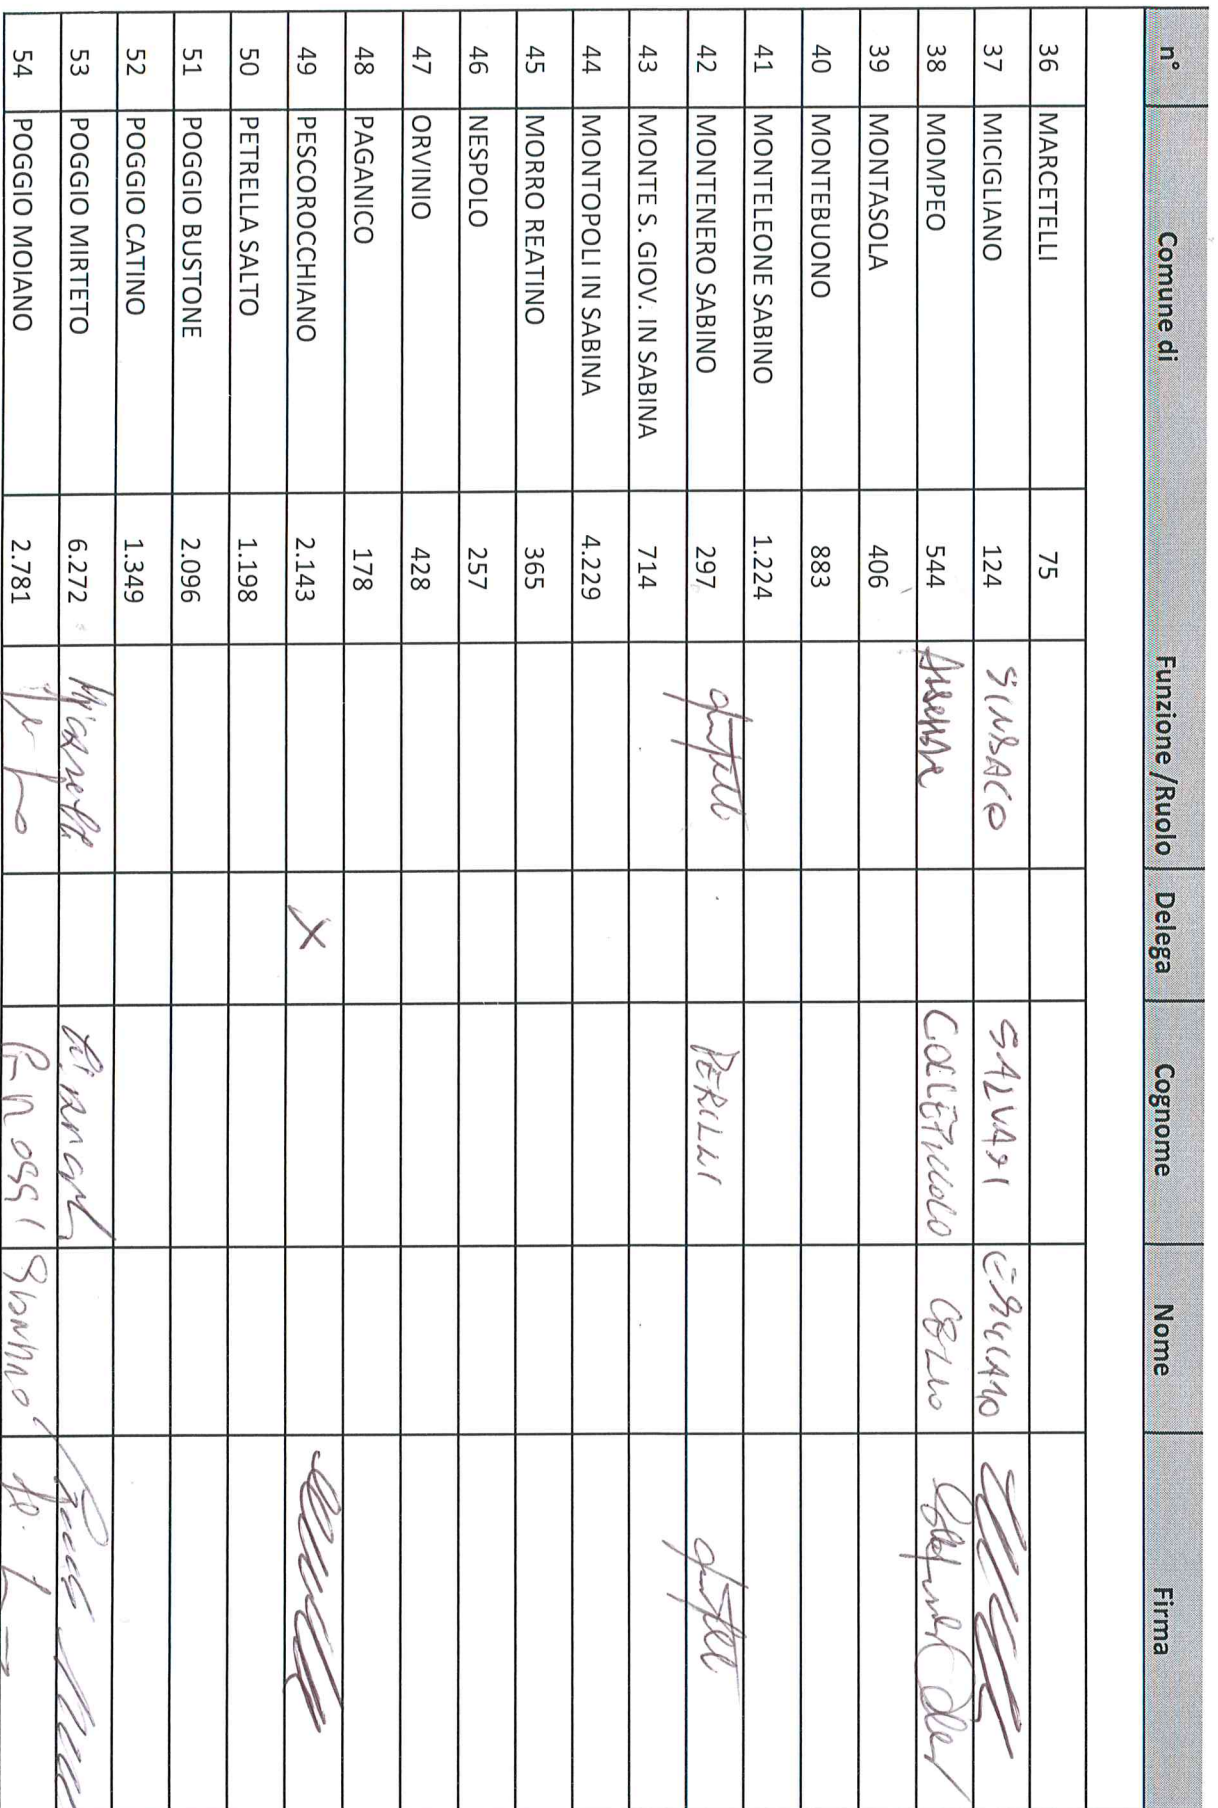 n° Comune di Funzione /Ruolo Delega Cognome Nome Firma
36 MARCETELLI 75
37 MICIGLIANO 124 SINDACO SALVATI EMILIANO
38 MOMPEO 544 Assessore
39 MONTASOLA 406
40 MONTEBUONO 883
41 MONTELEONE SABINO 1.224
42 MONTENERO SABINO 297 PERILLI
43 MONTE S. GIOV. IN SABINA 714
44 MONTOPOLI IN SABINA 4.229
45 MORRO REATINO 365
46 NESPOLO 257
47 ORVINIO 428
48 PAGANICO 178
49 PESCOROCCHIANO 2.143 X
50 PETRELLA SALTO 1.198
51 POGGIO BUSTONE 2.096
52 POGGIO CATINO 1.349
53 POGGIO MIRTETO 6.272
54 POGGIO MOIANO 2.781